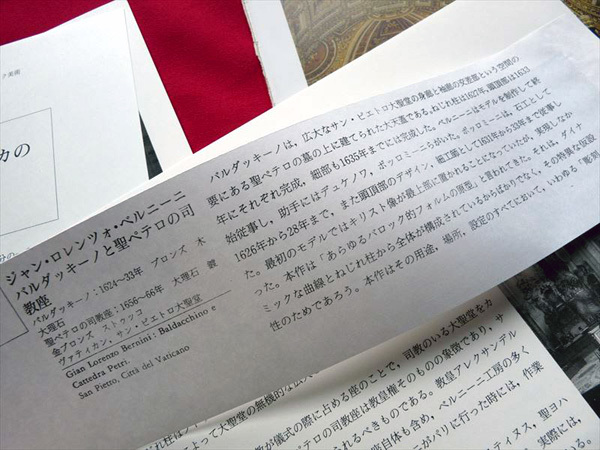 ク美術
カの
ジャン・ロレンツォ・ベルニーニ
バルダッキーノと聖ペテロの司
教座
バルダッキーノ：1624〜33年 ブロンズ 木
大理石
聖ペテロの司教座：1656〜66年 大理石
金ブロンズ ストゥッコ
ヴァティカン，サン・ピエトロ大聖堂
Gian Lorenzo Bernini: Baldacchino e
Cattedra Petri.
San Pietto, Città del Vaticano
バルダッキーノは，広大なサン・ピエトロ大聖堂の身廊と袖廊の交差部という空間の
要にある聖ペテロの墓の上に建てられた大天蓋である。ねじれ柱は1627年，頭頂部は1633
年にそれぞれ完成，細部も1635年までには完成した。ベルニーニはモデルを制作して終
始従事し，助手にはデュケノワ，ボッロミーニらがいた。ボッロミーニは，石工として
1626年から28年まで，また頭頂部のデザイン，細工師として1631年から33年まで従事し
た。最初のモデルではキリスト像が最上部に置かれることになっていたが，実現しなか
った。本作は「あらゆるバロック的フォルムの原型」と言われてきた。それは，ダイナ
ミックな曲線とねじれ柱から全体が構成されているからばかりでなく，その特異な仮設
性のためであろう。本作はその用途，場所，設定のすべてにおいて，いわゆる
によって大聖堂の無機的な
教が儀式の際に占める座のことで，司教のいる大聖堂をカ
ペテロの司教座は教皇権そのものの象徴であり，サ
られるべきものである。教皇アレクサンデル
座自体も含め，ベルニーニ工房の多く
ニがパリに行った時には，作業
ティヌス，聖ヨハ
実際には，